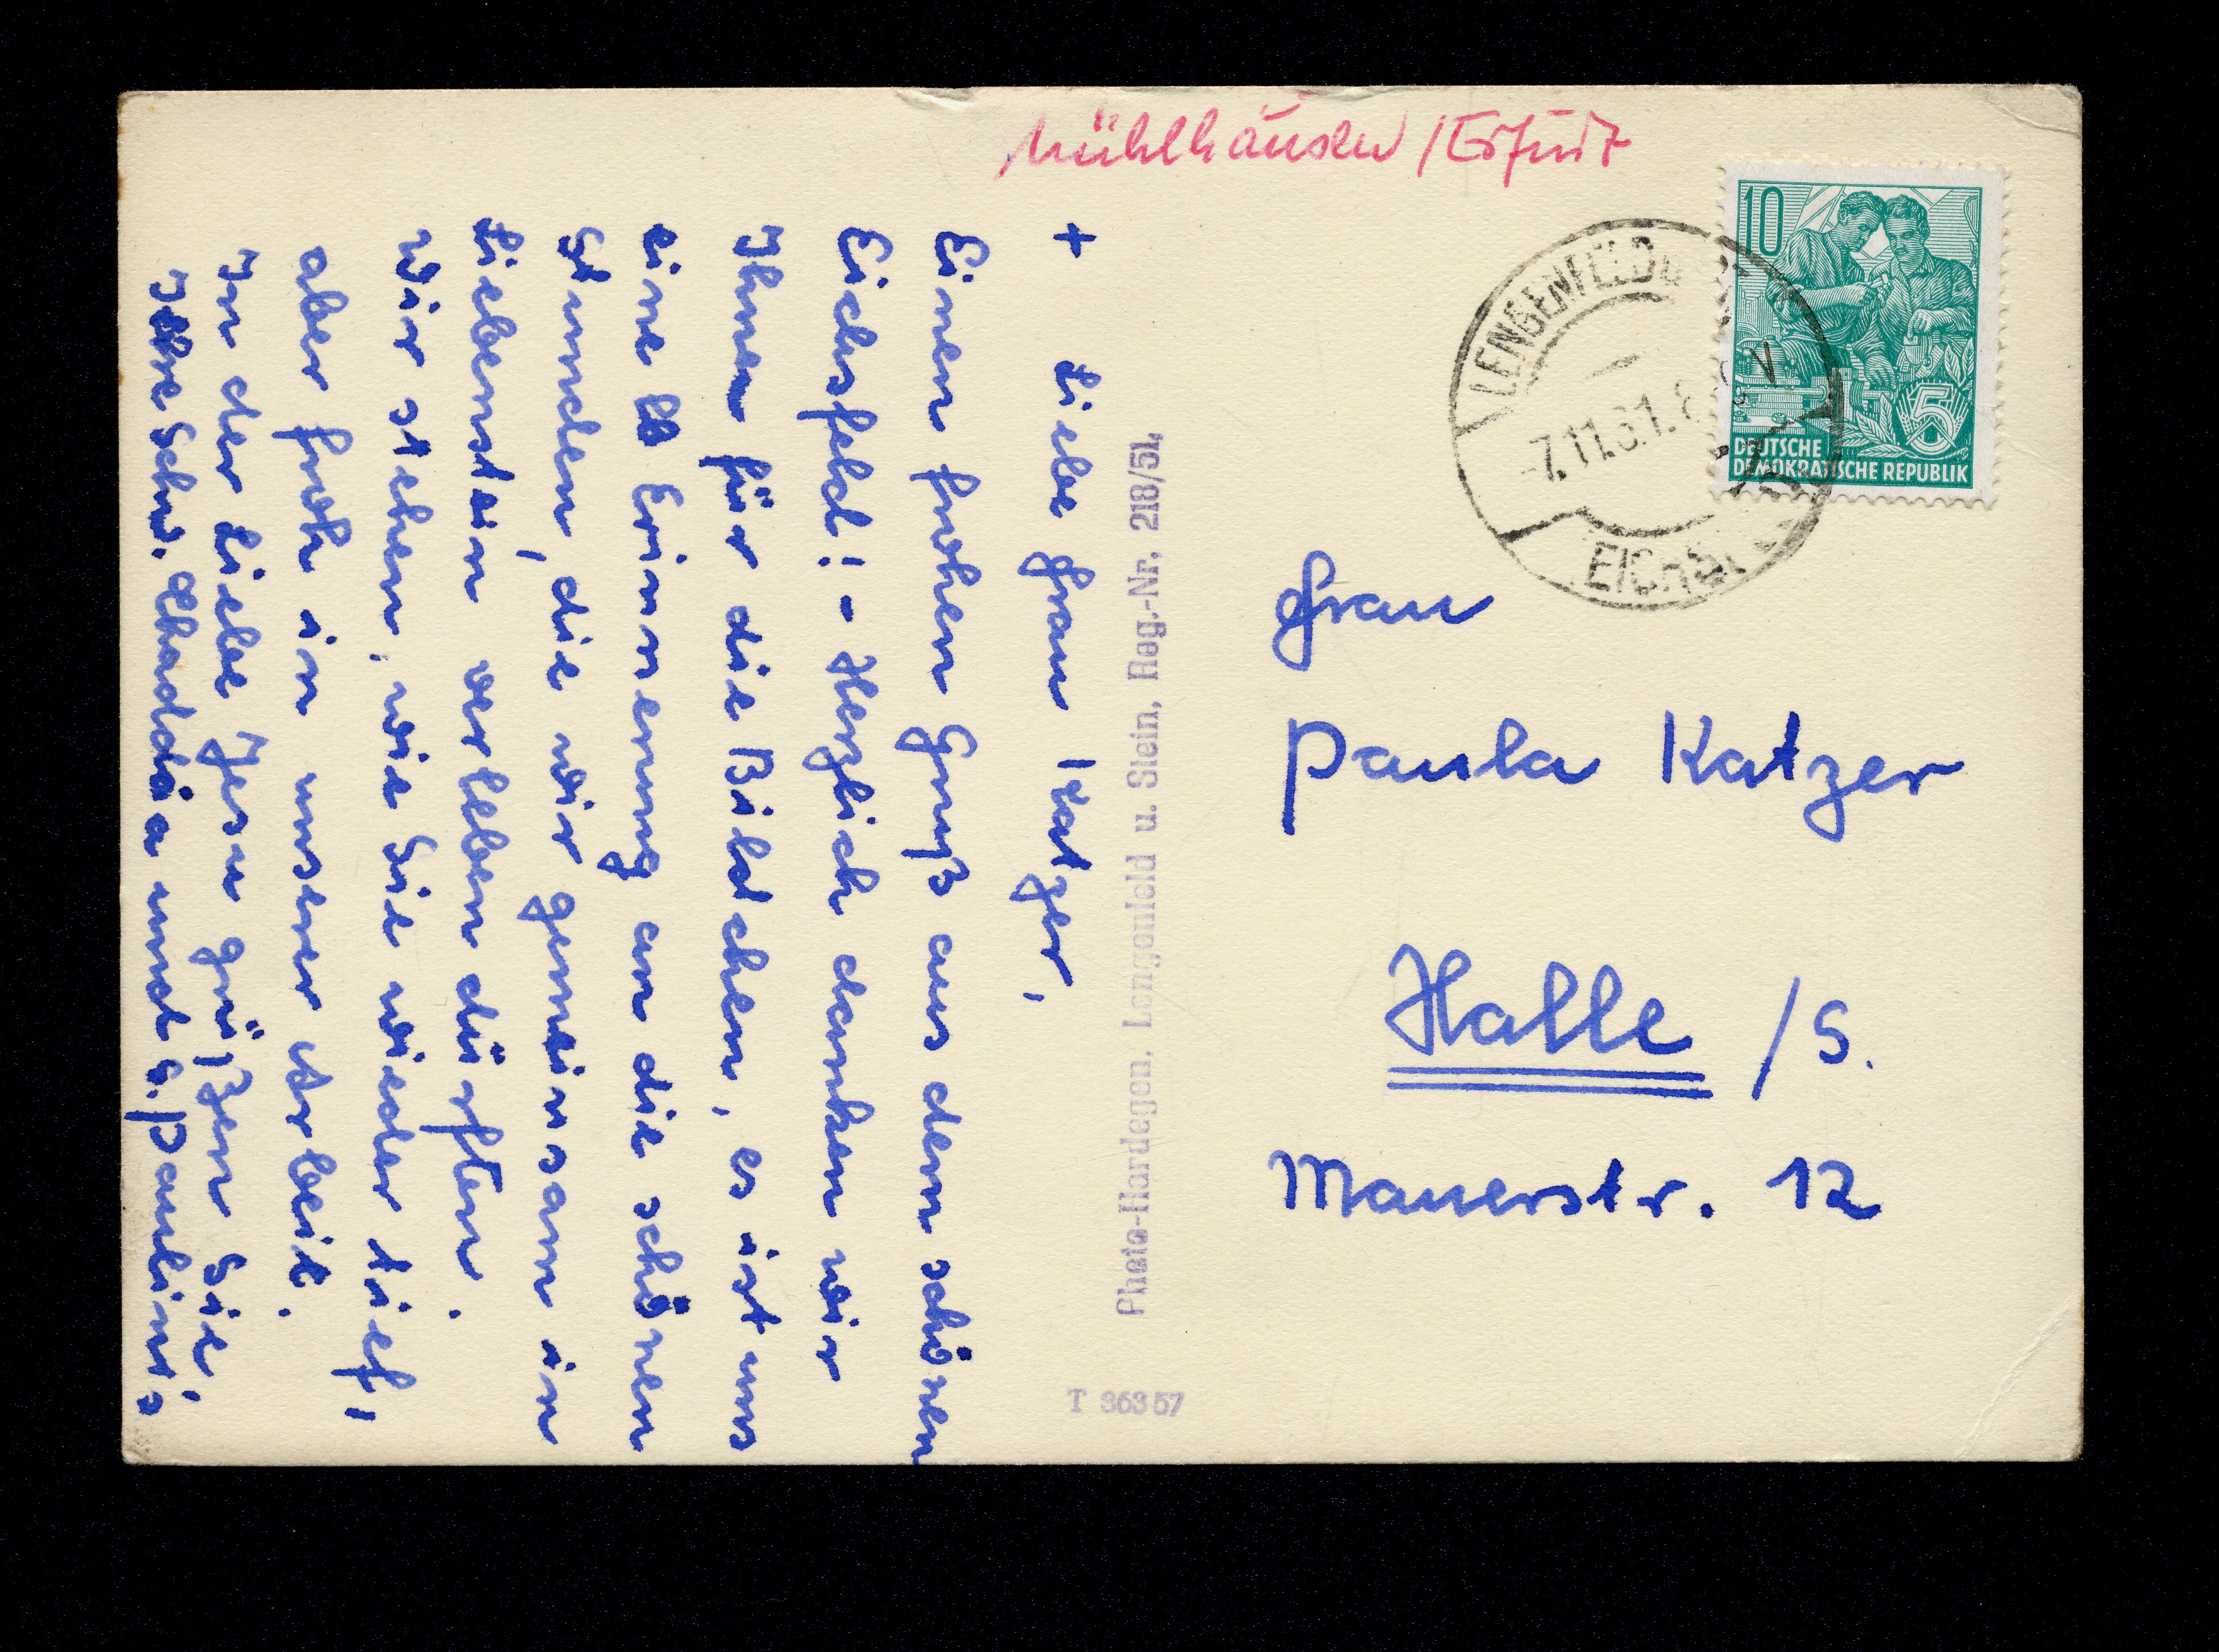 Mühlhausen / Erfurt
+ Liebe Frau Katzer,
Einen frohen Gruß aus dem schönen
Eichsfeld! - Herzlich danken wir
Ihnen für die Bildchen, es ist uns
eine Erinnerung an die schönen
Stunden, die wir gemeinsam in
Liebenstein verleben dürften.
Wir stehen, wie Sie wieder tief,
aber froh in unserer Arbeit.
In der Liebe Jesu grüßen Sie
Ihre Schw. Thaddäa und S. Paulinis
Photo-Hardegen, Lengenfeld u. Stein, Reg.-Nr. 218/51,
T 363 57
10
5
DEUTSCHE
DEMOKRATISCHE REPUBLIK
LENGENFELD
7.11.61
EICHSF
Frau
Paula Katzer
Halle / S.
Mauerstr. 12